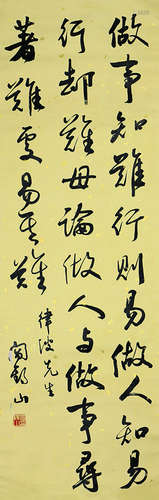 做事知難行則易做人知易
行却難毋論做人与做事尋
著難處易至難
律波先生
閻錫山